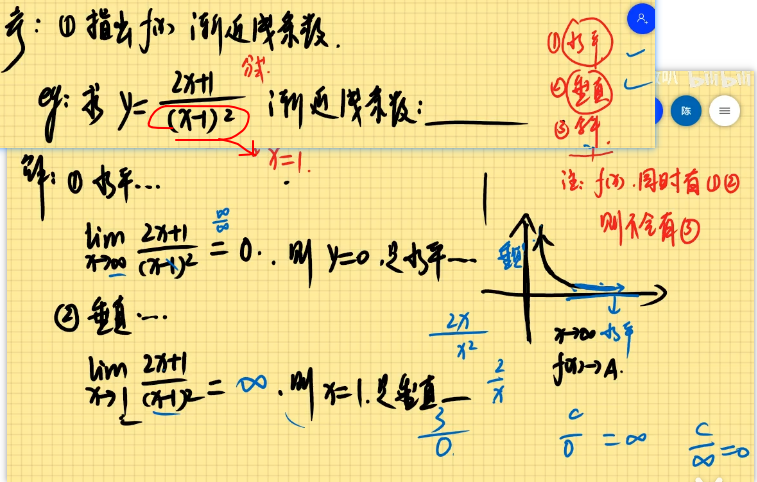 考: ① 指出 f(x) 渐近线条数.
eg: 求 y = \frac{2x+1}{(x-1)^2} 渐近线条数: ______
分式
x=1.
① 水平
② 垂直
③ 斜.
陈
注: f(x) 同时有 ① ②
则不会有 ③
解: ① 水平...
\lim_{x→∞} \frac{2x+1}{(x-1)^2} \overset{\frac{∞}{∞}}{=} 0. 则 y=0 是水平...
② 垂直...
\lim_{x→1} \frac{2x+1}{(x-1)^2} = ∞. 则 x=1. 是垂直__
\frac{2x}{x^2}
\frac{2}{x}
\frac{3}{0}
垂直
x→∞ 水平
f(x)→A.
\frac{c}{0} = ∞
\frac{c}{∞} = 0